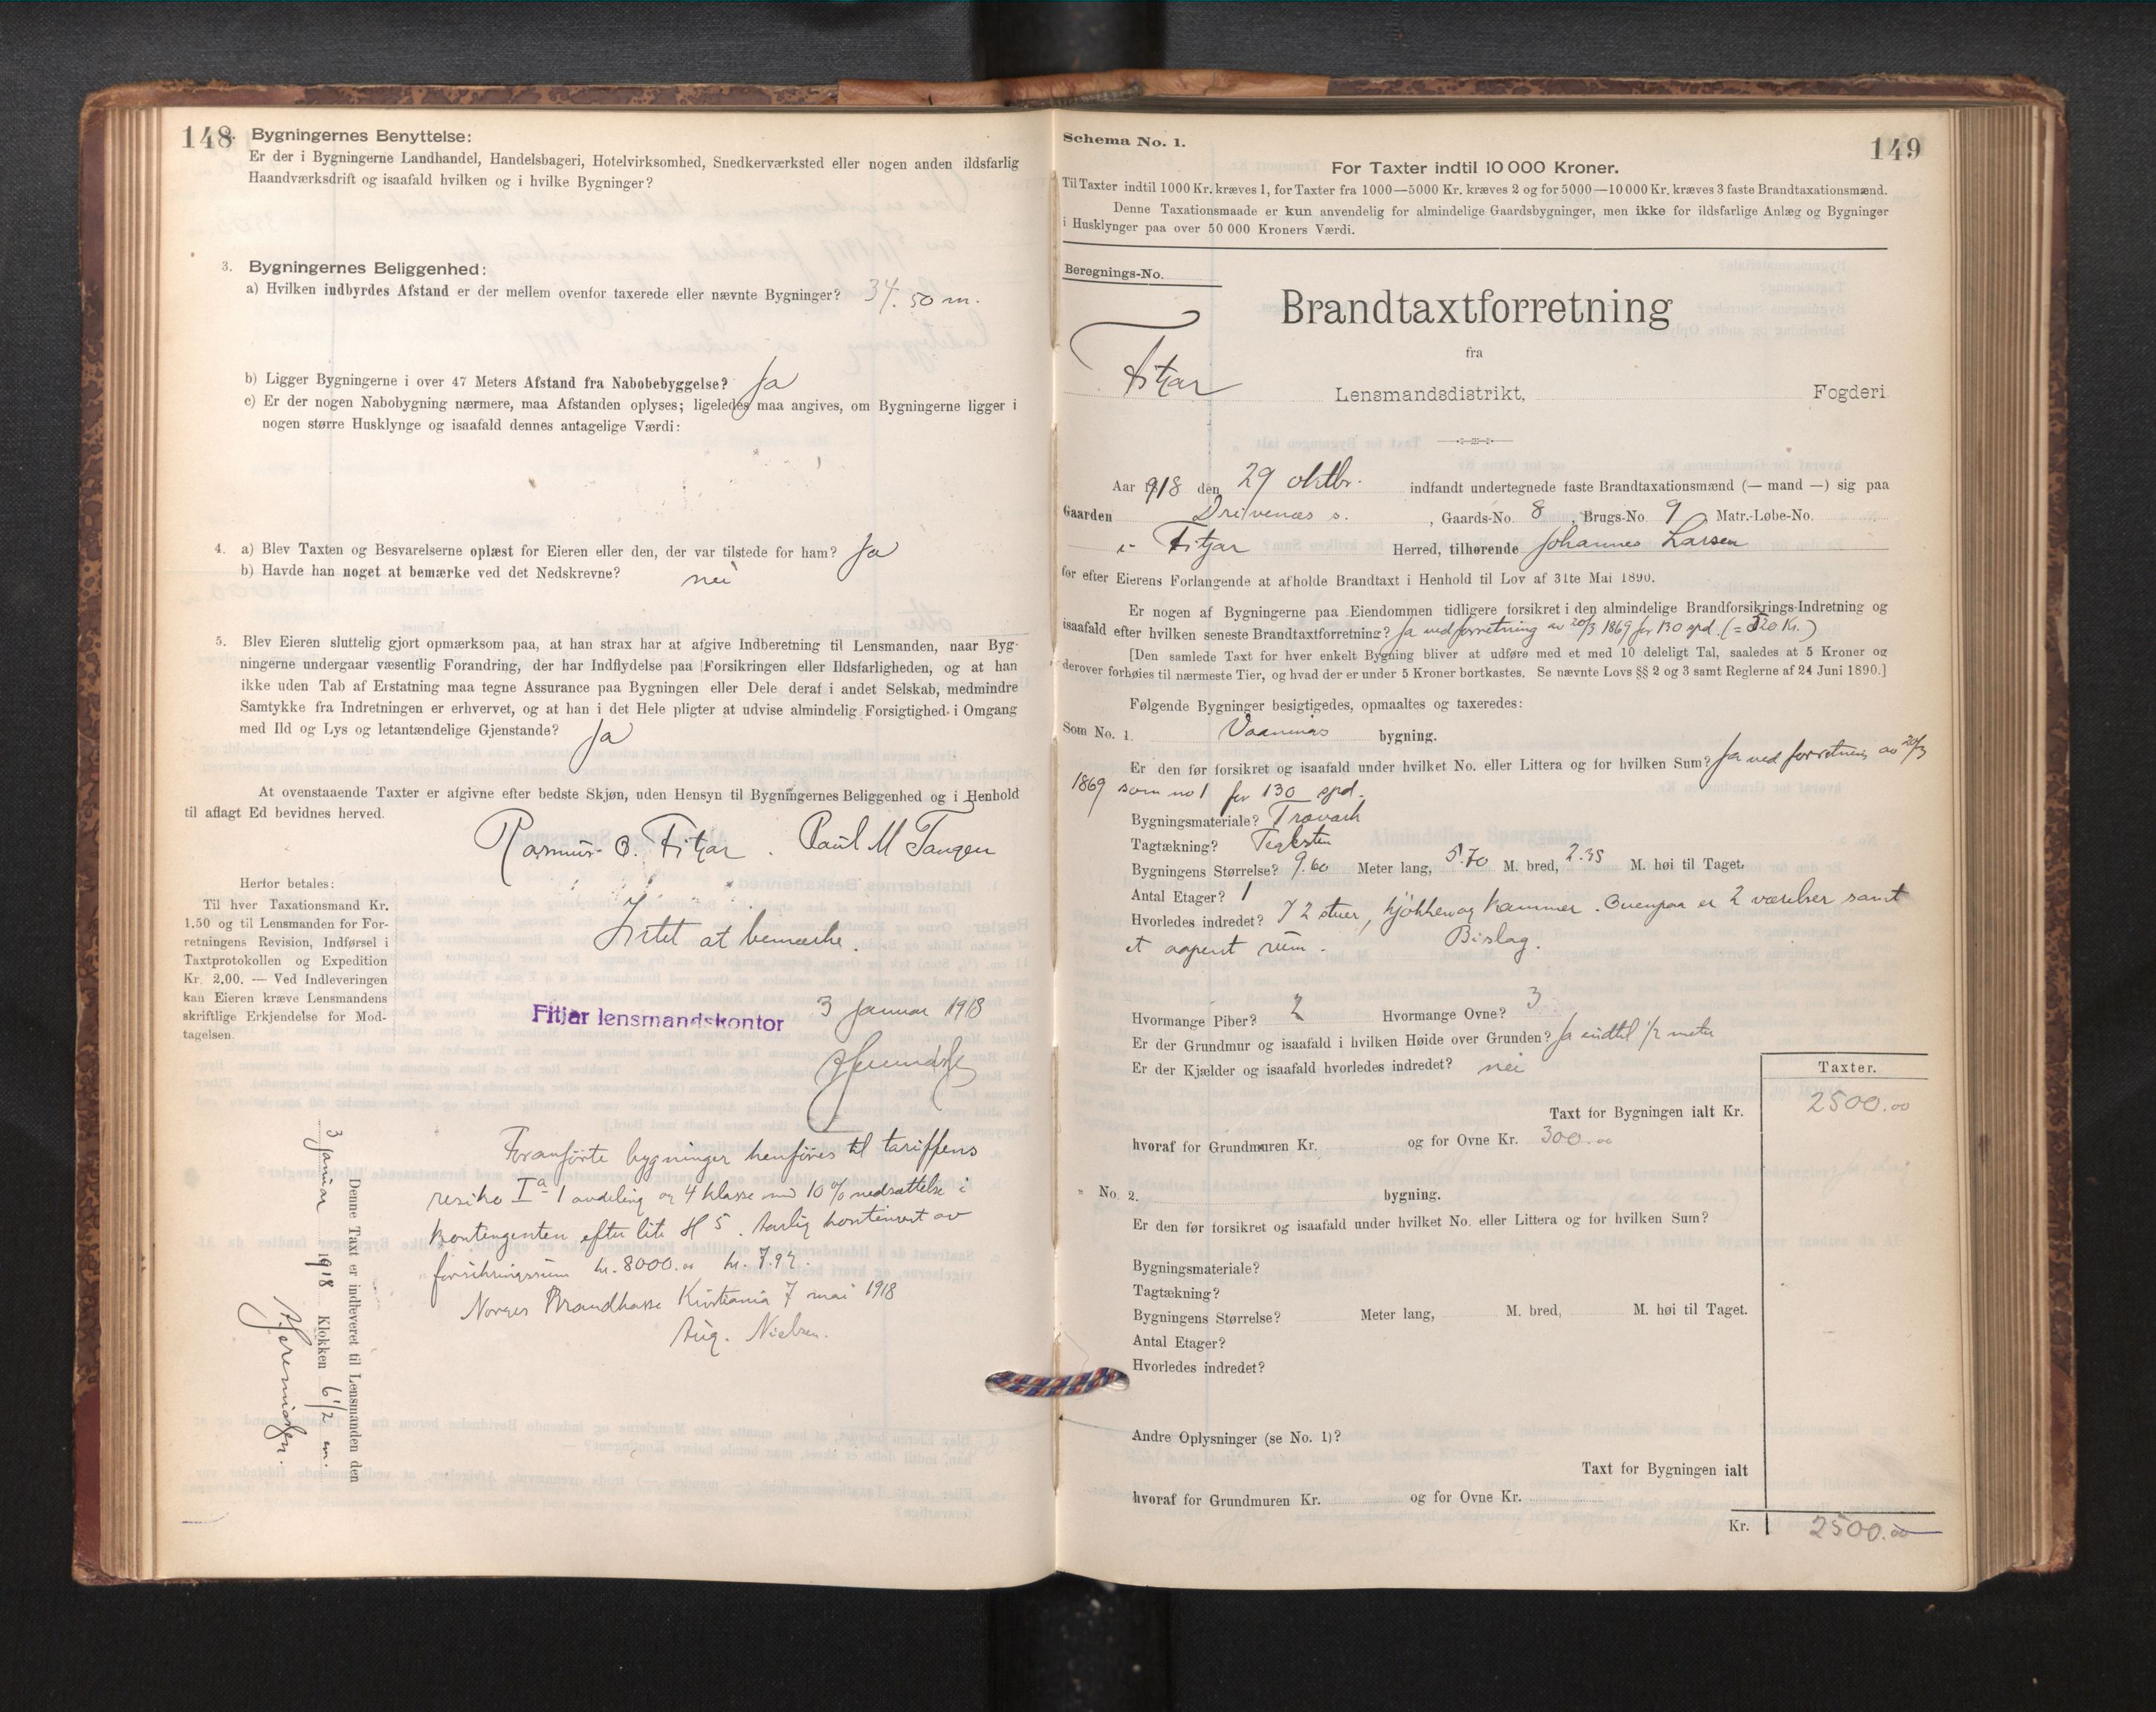 148
Bygningernes Benyttelse:
Er der i Bygningerne Landhandel, Handelsbageri, Hotelvirksomhed, Snedkerværksted eller nogen anden ildsfarlig
Haandværksdrift og isaafald hvilken og i hvilke Bygninger?
3. Bygningernes Beliggenhed:
a) Hvilken indbyrdes Afstand er der mellem ovenfor taxerede eller nævnte Bygninger? 34.50 m.
b) Ligger Bygningerne i over 47 Meters Afstand fra Nabobebyggelse? Ja
c) Er der nogen Nabobygning nærmere, maa Afstanden oplyses; ligeledes maa angives, om Bygningerne ligger i
nogen større Husklynge og isaafald dennes antagelige Værdi:
4. a) Blev Taxten og Besvarelserne oplæst for Eieren eller den, der var tilstede for ham? Ja
b) Havde han noget at bemærke ved det Nedskrevne? nei
5. Blev Eieren sluttelig gjort opmærksom paa, at han strax har at afgive Indberetning til Lensmanden, naar Byg-
ningerne undergaar væsentlig Forandring, der har Indflydelse paa Forsikringen eller Ildsfarligheden, og at han
ikke uden Tab af Erstatning maa tegne Assurance paa Bygningen eller Dele deraf i andet Selskab, medmindre
Samtykke fra Indretningen er erhvervet, og at han i det Hele pligter at udvise almindelig Forsigtighed i Omgang
med Ild og Lys og letantændelige Gjenstande? Ja
At ovenstaaende Taxter er afgivne efter bedste Skjøn, uden Hensyn til Bygningernes Beliggenhed og i Henhold
til aflagt Ed bevidnes herved.
Rasmus O. Fitjar. Paul M Tangen
Herfor betales:
Til hver Taxationsmand Kr.
1.50 og til Lensmanden for For-
retningens Revision, Indførsel i
Taxtprotokollen og Expedition
Kr. 2.00. — Ved Indleveringen
kan Eieren kræve Lensmandens
skriftlige Erkjendelse for Mod-
tagelsen.
Intet at bemerke.
Fitjar lensmandskontor 3 Januar 1918
Foranførte bygninger henføres til tariffens
resiko Ia 1 avdeling og 4 klasse med 10% nedsættelse i
kontingenten efter lite H 5. Aarlig kontingent av
forsikringssum kr. 8000.00 kr. 7.92.
Norges Brandkasse Kristiania 7 mai 1918
Aug. Nielsen.
Denne Taxt er indleveret til Lensmanden den
3 Januar 1918 Klokken 6 1/2 em.
149
Schema No. 1.
For Taxter indtil 10 000 Kroner.
Til Taxter indtil 1000 Kr. kræves 1, for Taxter fra 1000—5000 Kr. kræves 2 og for 5000—10 000 Kr. kræves 3 faste Brandtaxationsmænd.
Denne Taxationsmaade er kun anvendelig for almindelige Gaardsbygninger, men ikke for ildsfarlige Anlæg og Bygninger
i Husklynger paa over 50 000 Kroners Værdi.
Beregnings-No.
Brandtaxtforretning
fra
Fitjar Lensmandsdistrikt, Fogderi
Aar 1918 den 29 oktbr. indfandt undertegnede faste Brandtaxationsmænd (— mand —) sig paa
Gaarden Dreivenæs s., Gaards-No. 8, Brugs-No. 9 Matr.-Løbe-No.
i Fitjar Herred, tilhørende Johannes Larsen
for efter Eierens Forlangende at afholde Brandtaxt i Henhold til Lov af 31te Mai 1890.
Er nogen af Bygningerne paa Eiendommen tidligere forsikret i den almindelige Brandforsikrings-Indretning og
isaafald efter hvilken seneste Brandtaxtforretning? Ja ved forretning av 20/3 1869 for 130 spd. (= 520 Kr.)
[Den samlede Taxt for hver enkelt Bygning bliver at udføre med et med 10 deleligt Tal, saaledes at 5 Kroner og
derover forhøies til nærmeste Tier, og hvad der er under 5 Kroner bortkastes. Se nævnte Lovs §§ 2 og 3 samt Reglerne af 24 Juni 1890.]
Følgende Bygninger besigtigedes, opmaaltes og taxeredes:
Som No. 1. Vaanings bygning.
Er den før forsikret og isaafald under hvilket No. eller Littera og for hvilken Sum? Ja ved forretning av 20/3
1869 som no 1 for 130 spd.
Bygningsmateriale? Træværk
Tagtækning? Teglsten
Bygningens Størrelse? 9.60 Meter lang, 5.70 M. bred, 2.35 M. høi til Taget.
Antal Etager? 1
Hvorledes indredet? I 2 stuer, kjøkken og kammer. Ovenpaa er 2 værelser samt
et aapent rum. Bislag.
Hvormange Piber? 2 Hvormange Ovne? 3
Er der Grundmur og isaafald i hvilken Høide over Grunden? Ja indtil 1/2 meter
Er der Kjælder og isaafald hvorledes indredet? nei
Taxter.
Taxt for Bygningen ialt Kr. 2500.00
hvoraf for Grundmuren Kr. og for Ovne Kr. 300.00
" No. 2. bygning.
Er den før forsikret og isaafald under hvilket No. eller Littera og for hvilken Sum?
Bygningsmateriale?
Tagtækning?
Bygningens Størrelse? Meter lang, M. bred, M. høi til Taget.
Antal Etager?
Hvorledes indredet?
Andre Oplysninger (se No. 1)?
Taxt for Bygningen ialt
hvoraf for Grundmuren Kr. og for Ovne Kr.
Kr. 2500.00